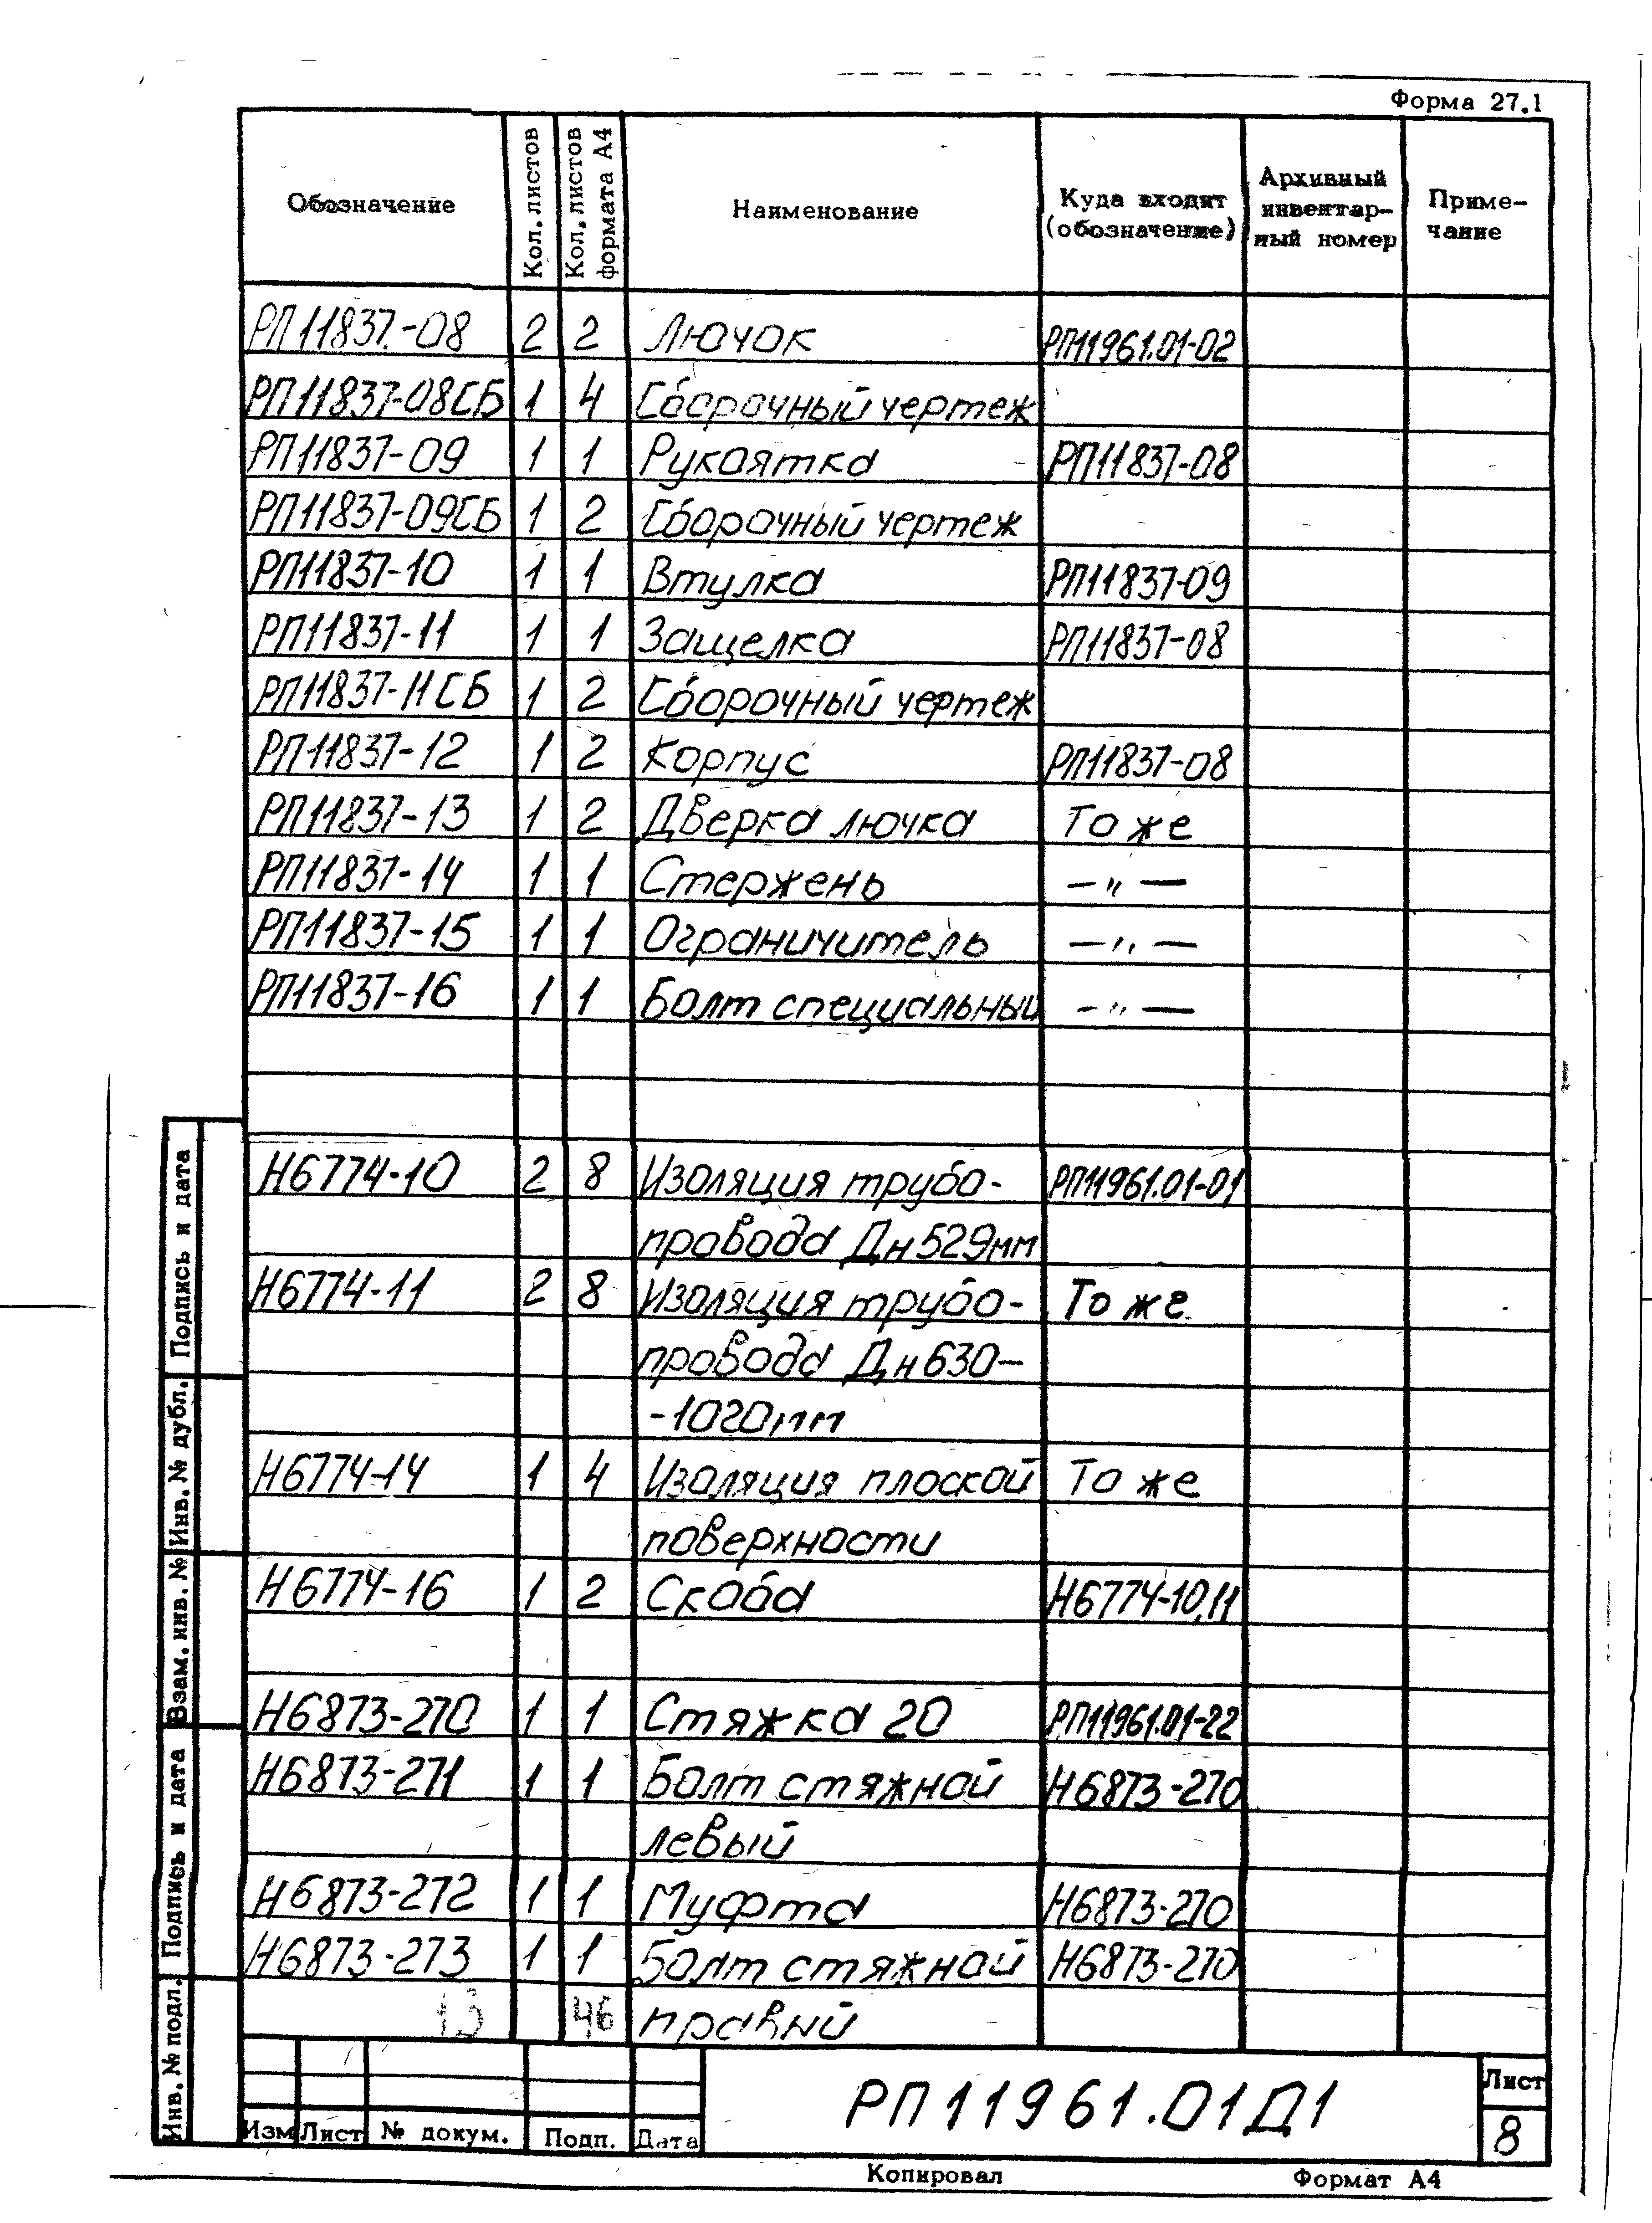 Форма 27.1
Обозначение Кол. листов Кол. листов формата А4 Наименование Куда входит (обозначение) Архивный инвентар- ный номер Приме- чание
РП11837-08 2 2 Лючок РП11961.01-02
РП11837-08СБ 1 4 Сборочный чертеж
РП11837-09 1 1 Рукоятка РП11837-08
РП11837-09СБ 1 2 Сборочный чертеж
РП11837-10 1 1 Втулка РП11837-09
РП11837-11 1 1 Защелка РП11837-08
РП11837-11СБ 1 2 Сборочный чертеж
РП11837-12 1 2 Корпус РП11837-08
РП11837-13 1 2 Дверка лючка То же
РП11837-14 1 1 Стержень —"—
РП11837-15 1 1 Ограничитель —"—
РП11837-16 1 1 Болт специальный —"—
Н6774-10 2 8 Изоляция трубо- РП11961.01-01
провода Дн529мм
Н6774-11 2 8 Изоляция трубо- То же
провода Дн630-
-1020мм
Н6774-14 1 4 Изоляция плоской То же
поверхности
Н6774-16 1 2 Скоба Н6774-10,11
Н6873-270 1 1 Стяжка 20 РП11961.01-22
Н6873-271 1 1 Болт стяжной Н6873-270
левый
Н6873-272 1 1 Муфта Н6873-270
Н6873-273 1 1 Болт стяжной Н6873-270
13 46 правый
Инв. № подл. Подпись и дата Взам. инв. № Инв. № дубл. Подпись и дата
Изм Лист № докум. Подп. Дата
РП11961.01Д1
Лист
8
Копировал Формат А4